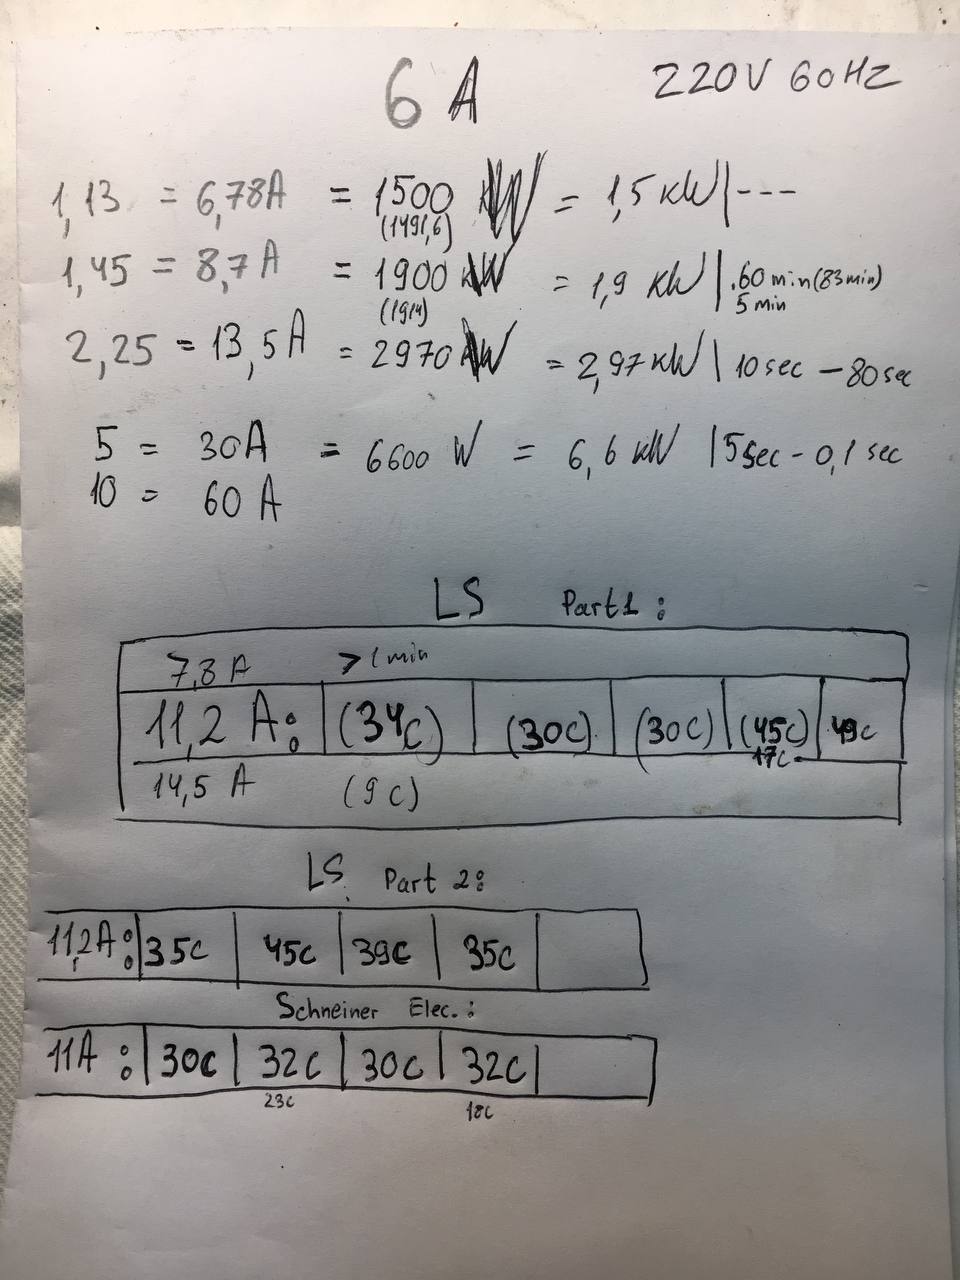 6 A 220V 60HZ
1,13 = 6,78A = 1500 W = 1,5 kW | ---
(1491,6)
1,45 = 8,7 A = 1900 W = 1,9 kW | .60 min (83min)
(1914) 5 min
2,25 = 13,5 A = 2970 W = 2,97 kW | 10 sec - 80 sec
5 = 30A = 6600 W = 6,6 kW | 5sec - 0,1 sec
10 = 60 A
LS Part1 :
7,8 A > 1 min
11,2 A: (34c) (30c) (30c) (45c) 49c
17c
14,5 A (9 c)
LS Part 2:
11,2A: 35c 45c 39c 35c
Schneiner Elec. :
11A : 30c 32c 30c 32c
23c 18c